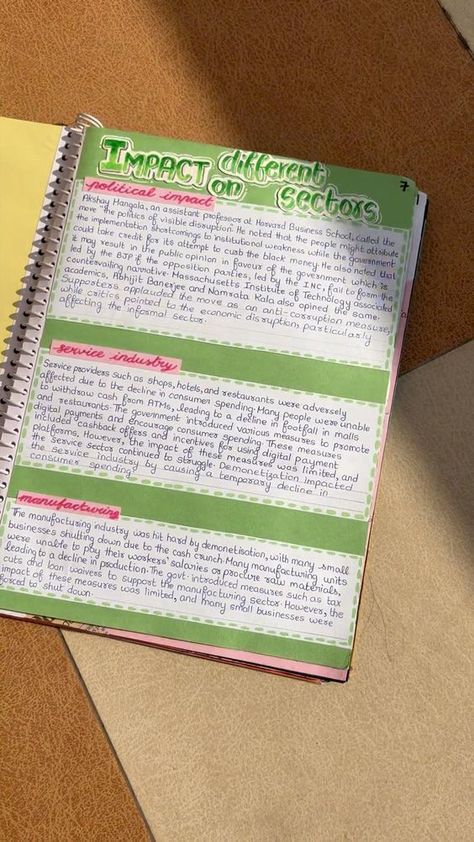 7
IMPACT different
on sectors
political impact
Akshay Mangala, an assistant professor at Harvard Business School, called the
move "the politics of visible disruption". He noted that the people might attribute
the implementation shortcomings to institutional weakness while the government
could take credit for its attempt to curb the black money. He also noted that
it may result in the public opinion in favour of the government which is
led by the BJP if the opposition parties, led by the INC, fail to form the
countervailing narrative. Massachusetts Institute of Technology associated
academics, Abhijit Banerjee and Namrata Kala also opined the same.
Supporters applauded the move as an anti-corruption measure,
while critics pointed to the economic disruption, particularly
affecting the informal sector.
service industry
Service providers such as shops, hotels, and restaurants were adversely
affected due to the decline in consumer spending. Many people were unable
to withdraw cash from ATMs, leading to a decline in footfall in malls
and restaurants. The government introduced various measures to promote
digital payments and encourage consumer spending. These measures
included cashback offers and incentives for using digital payment
platforms. However, the impact of these measures was limited, and
the service sector continued to struggle. Demonetization impacted
the service industry by causing a temporary decline in
consumer spending.
manufacturing
The manufacturing industry was hit hard by demonetisation, with many small
businesses shutting down due to the cash crunch. Many manufacturing units
were unable to pay their workers' salaries or procure raw materials,
leading to a decline in production. The govt. introduced measures such as tax
cuts and loan waivers to support the manufacturing sector. However, the
impact of these measures was limited, and many small businesses were
forced to shut down.